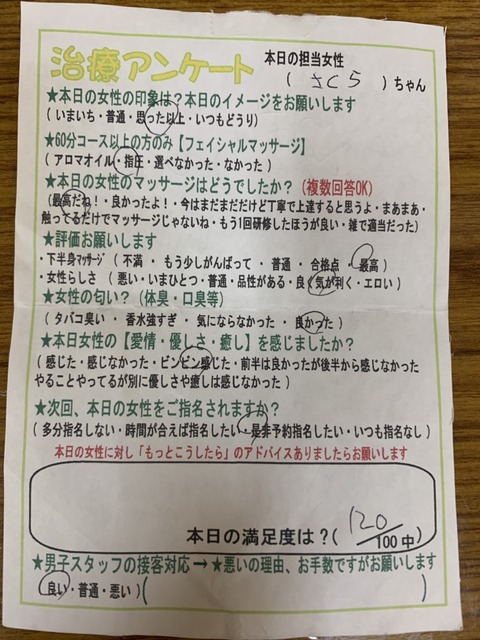 治療アンケート
本日の担当女性
( さくら )ちゃん
★本日の女性の印象は？本日のイメージをお願いします
( いまいち・普通・思った以上・いつもどうり )
★60分コース以上の方のみ【フェイシャルマッサージ】
( アロマオイル・指圧・選べなかった・なかった )
★本日の女性のマッサージはどうでしたか？(複数回答OK)
(最高だね！・良かったよ！・今はまだまだだけど丁寧で上達すると思うよ・まあまあ・
触ってるだけでマッサージじゃないね・もう1回研修したほうが良い・雑で適当だった)
★評価お願いします
・下半身マッサージ ( 不満 ・ もう少しがんばって ・ 普通 ・ 合格点 ・ 最高 )
・女性らしさ ( 悪い・いまひとつ・普通・品性がある・良く気が利く・エロい )
★女性の匂い？ (体臭・口臭等)
( タバコ臭い ・ 香水強すぎ ・ 気にならなかった ・ 良かった )
★本日女性の【愛情・優しさ・癒し】を感じましたか？
( 感じた・感じなかった・ビンビン感じた・前半は良かったが後半から感じなかった
やることやってるが別に優しさや癒しは感じなかった )
★次回、本日の女性をご指名されますか？
( 多分指名しない・時間が合えば指名したい・是非予約指名したい・いつも指名なし )
本日の女性に対し「もっとこうしたら」のアドバイスありましたらお願いします
本日の満足度は？( 120/100中 )
★男子スタッフの接客対応 → ★悪いの理由、お手数ですがお願いします
( 良い・普通・悪い ) ( )